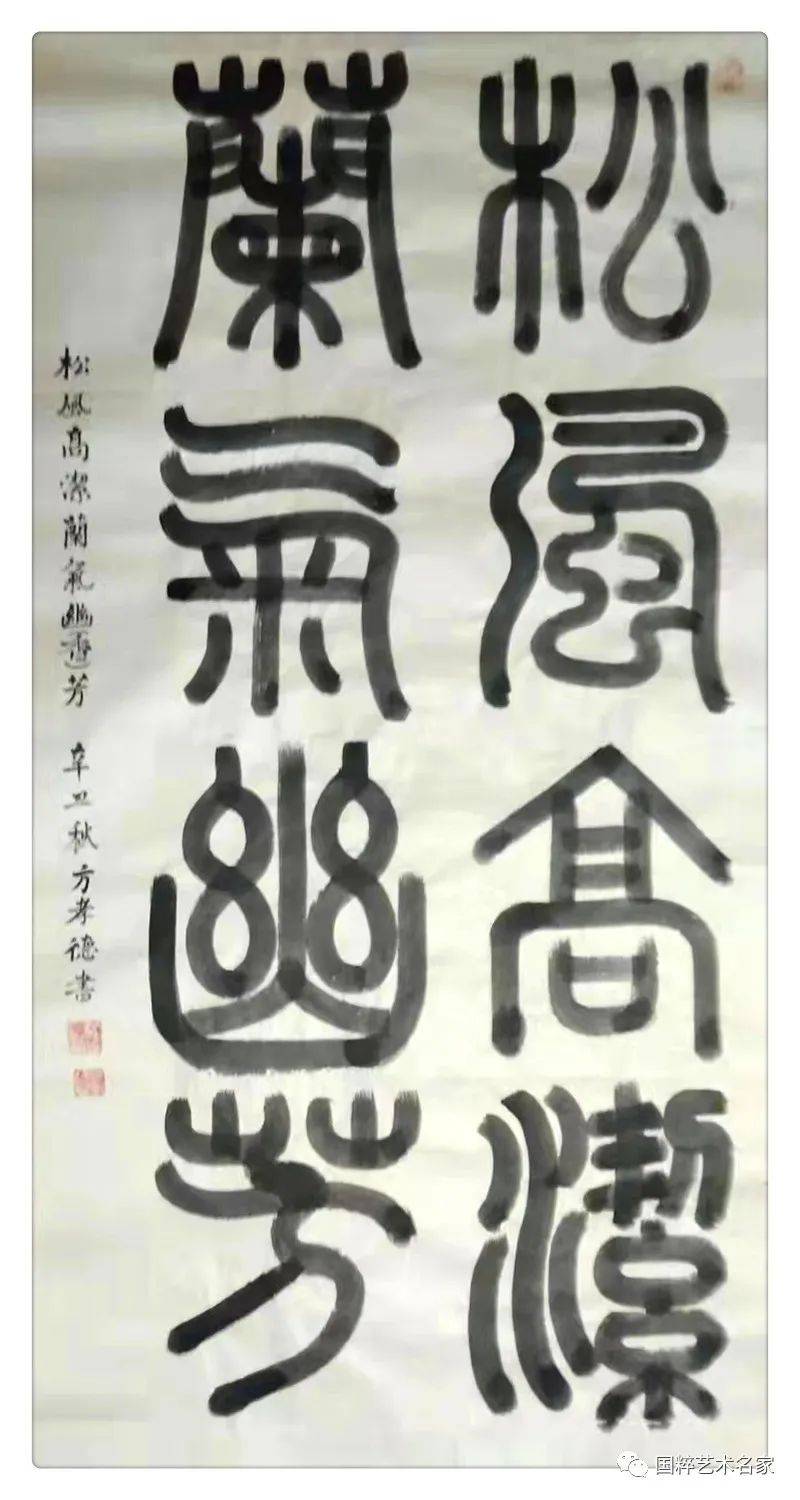 松風高潔
蘭氣幽芳
松風髙潔蘭氣幽芳 辛丑秋方孝德書
国粹艺术名家